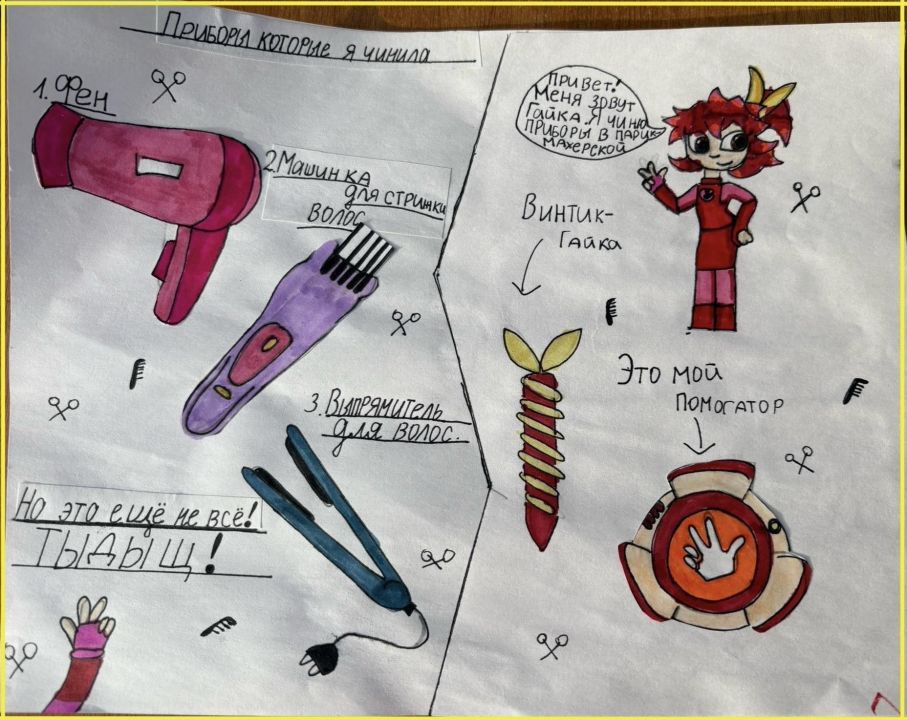 Приборы которые я чинила
1. Фен
2. Машинка
для стрижки
волос
3. Выпрямитель
для волос.
Но это ещё не всё!
Тыдыщ!
Привет!
Меня зовут
Гайка. Я чиню
приборы в парик-
махерской
Винтик-
Гайка
Это мой
помогатор